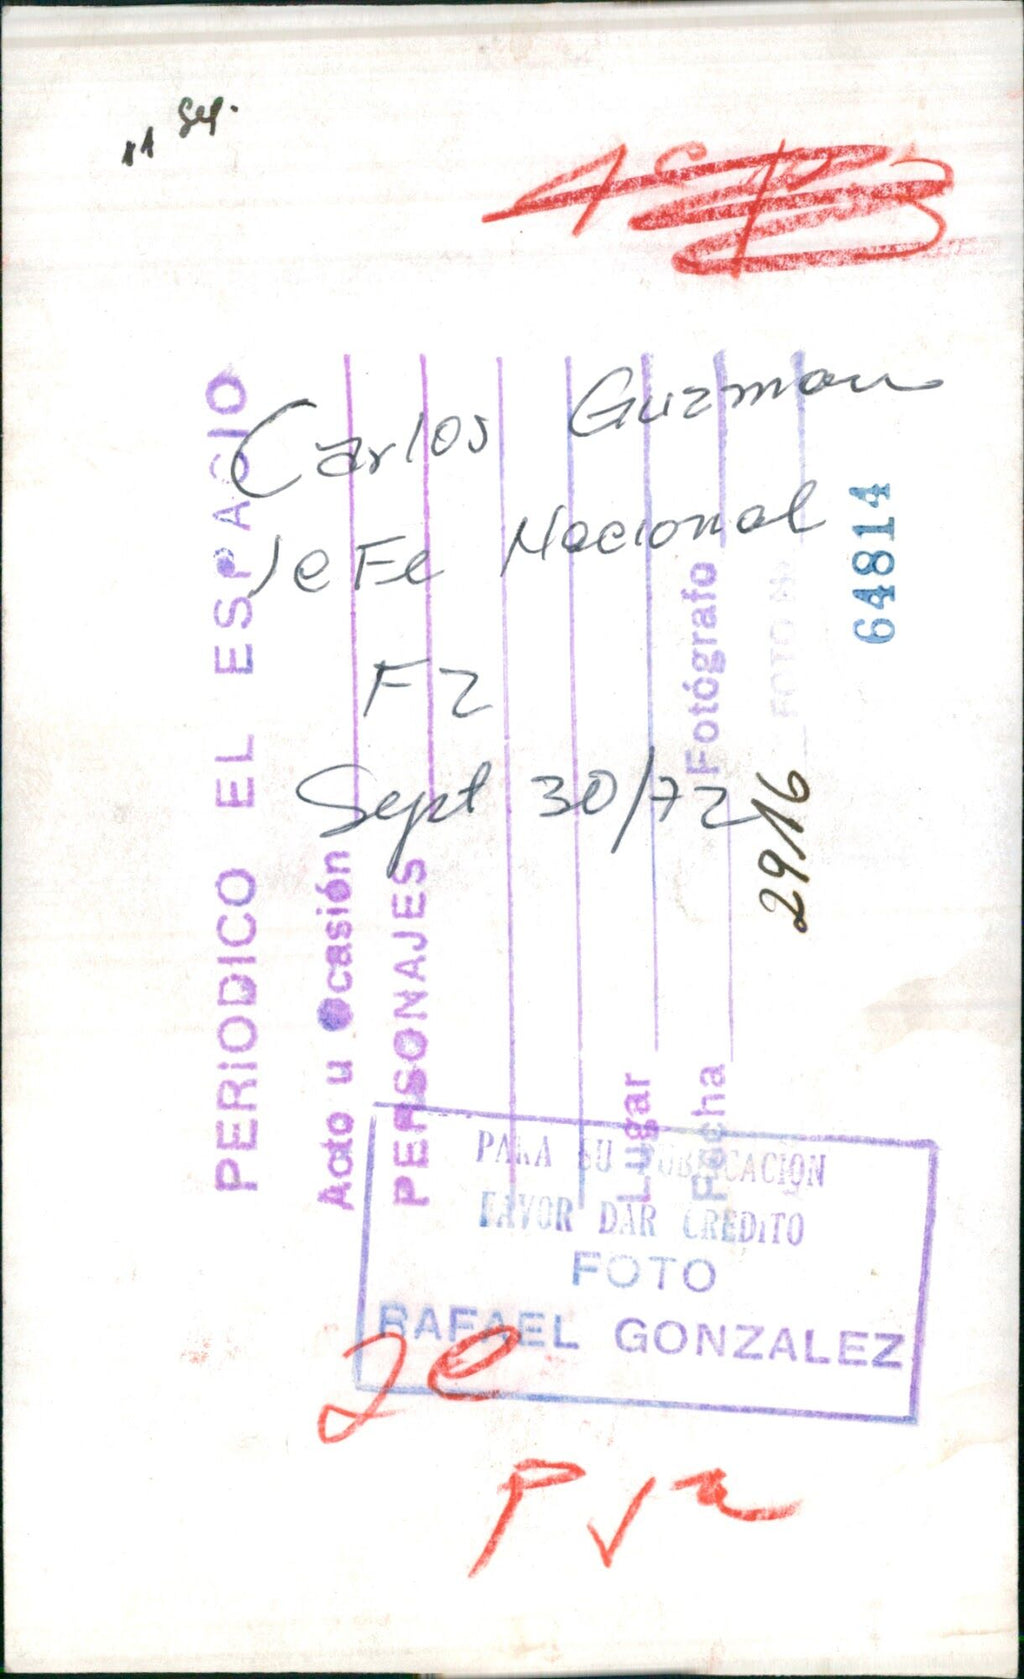 11 Sep.
Carlos Guzman
Jefe Nacional
FZ
Sept 30/72
PERIODICO EL ESPACIO
Acto u Ocasión
PERSONAJES
Lugar
Fecha
Fotógrafo
FOTO
64814
29/16
PARA SU PUBLICACION
FAVOR DAR CREDITO
FOTO
RAFAEL GONZALEZ
2e